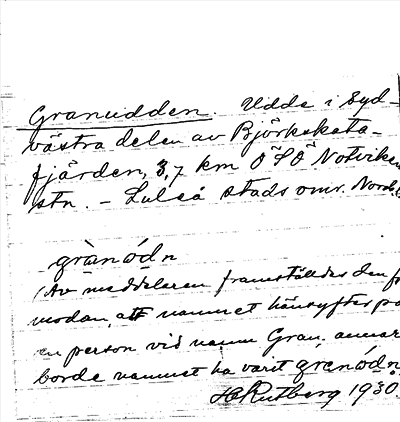 Granudden. Udde i Syd-
västra delen av Björkskata-
fjärden, 3,7 km OSO Notviken
stn. - Luleå stads omr. Nordb.
grànódn
(Av meddelaren framställdes den för-
modan, att namnet hänsyftar på
en person vid namn Gran, annars
borde namnet ha varit grenódn.
H Rutberg 1930.